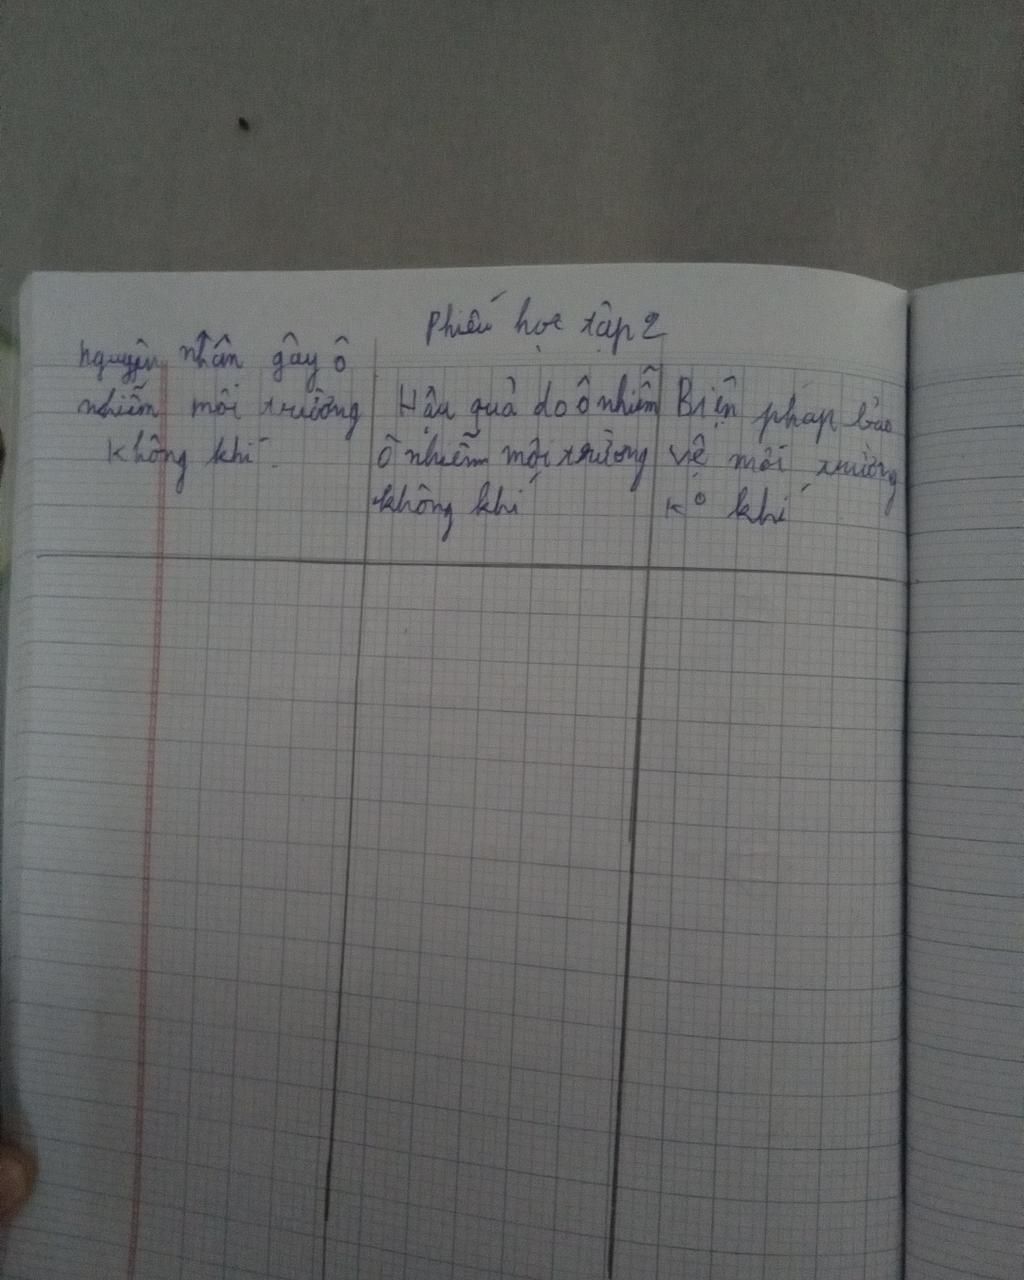 Phiếu học tập 2
Nguyên nhân gây ô
nhiễm môi trường
không khí
Hậu quả do ô nhiễm
ô nhiễm môi trường
không khí
Biện pháp bảo
vệ môi trường
K° khí